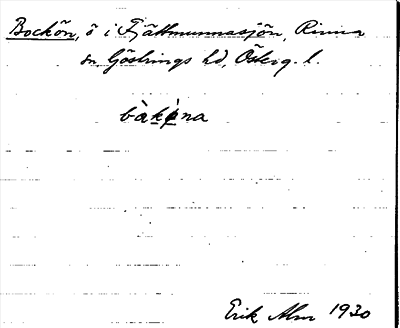 Bockön, ö i Fjättmunnasjön, Rinna
sn, Göstrings hd, Österg. l.
bàkøna
Erik Alm 1930